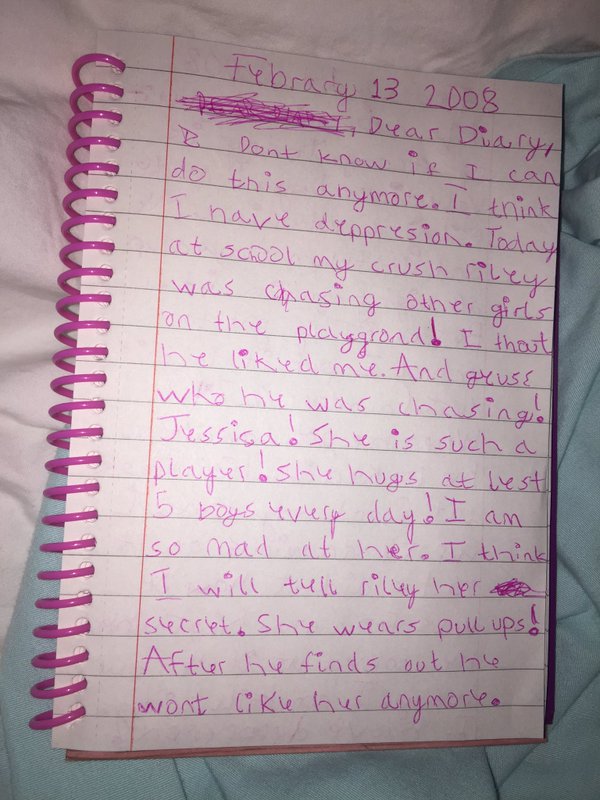 Febrary 13 2008
Dear Diary,
I Dont know if I can
do this anymore. I think
I have deppresion. Today
at school my crush riley
was chasing other girls
on the playgrond! I thout
he liked me. And geuse
who he was chasing!
Jessica! She is such a
player! She hugs at lest
5 boys every day! I am
so mad at her. I think
I will tell riley her
secret. She wears pull ups!
After he finds out he
wont like her anymore.